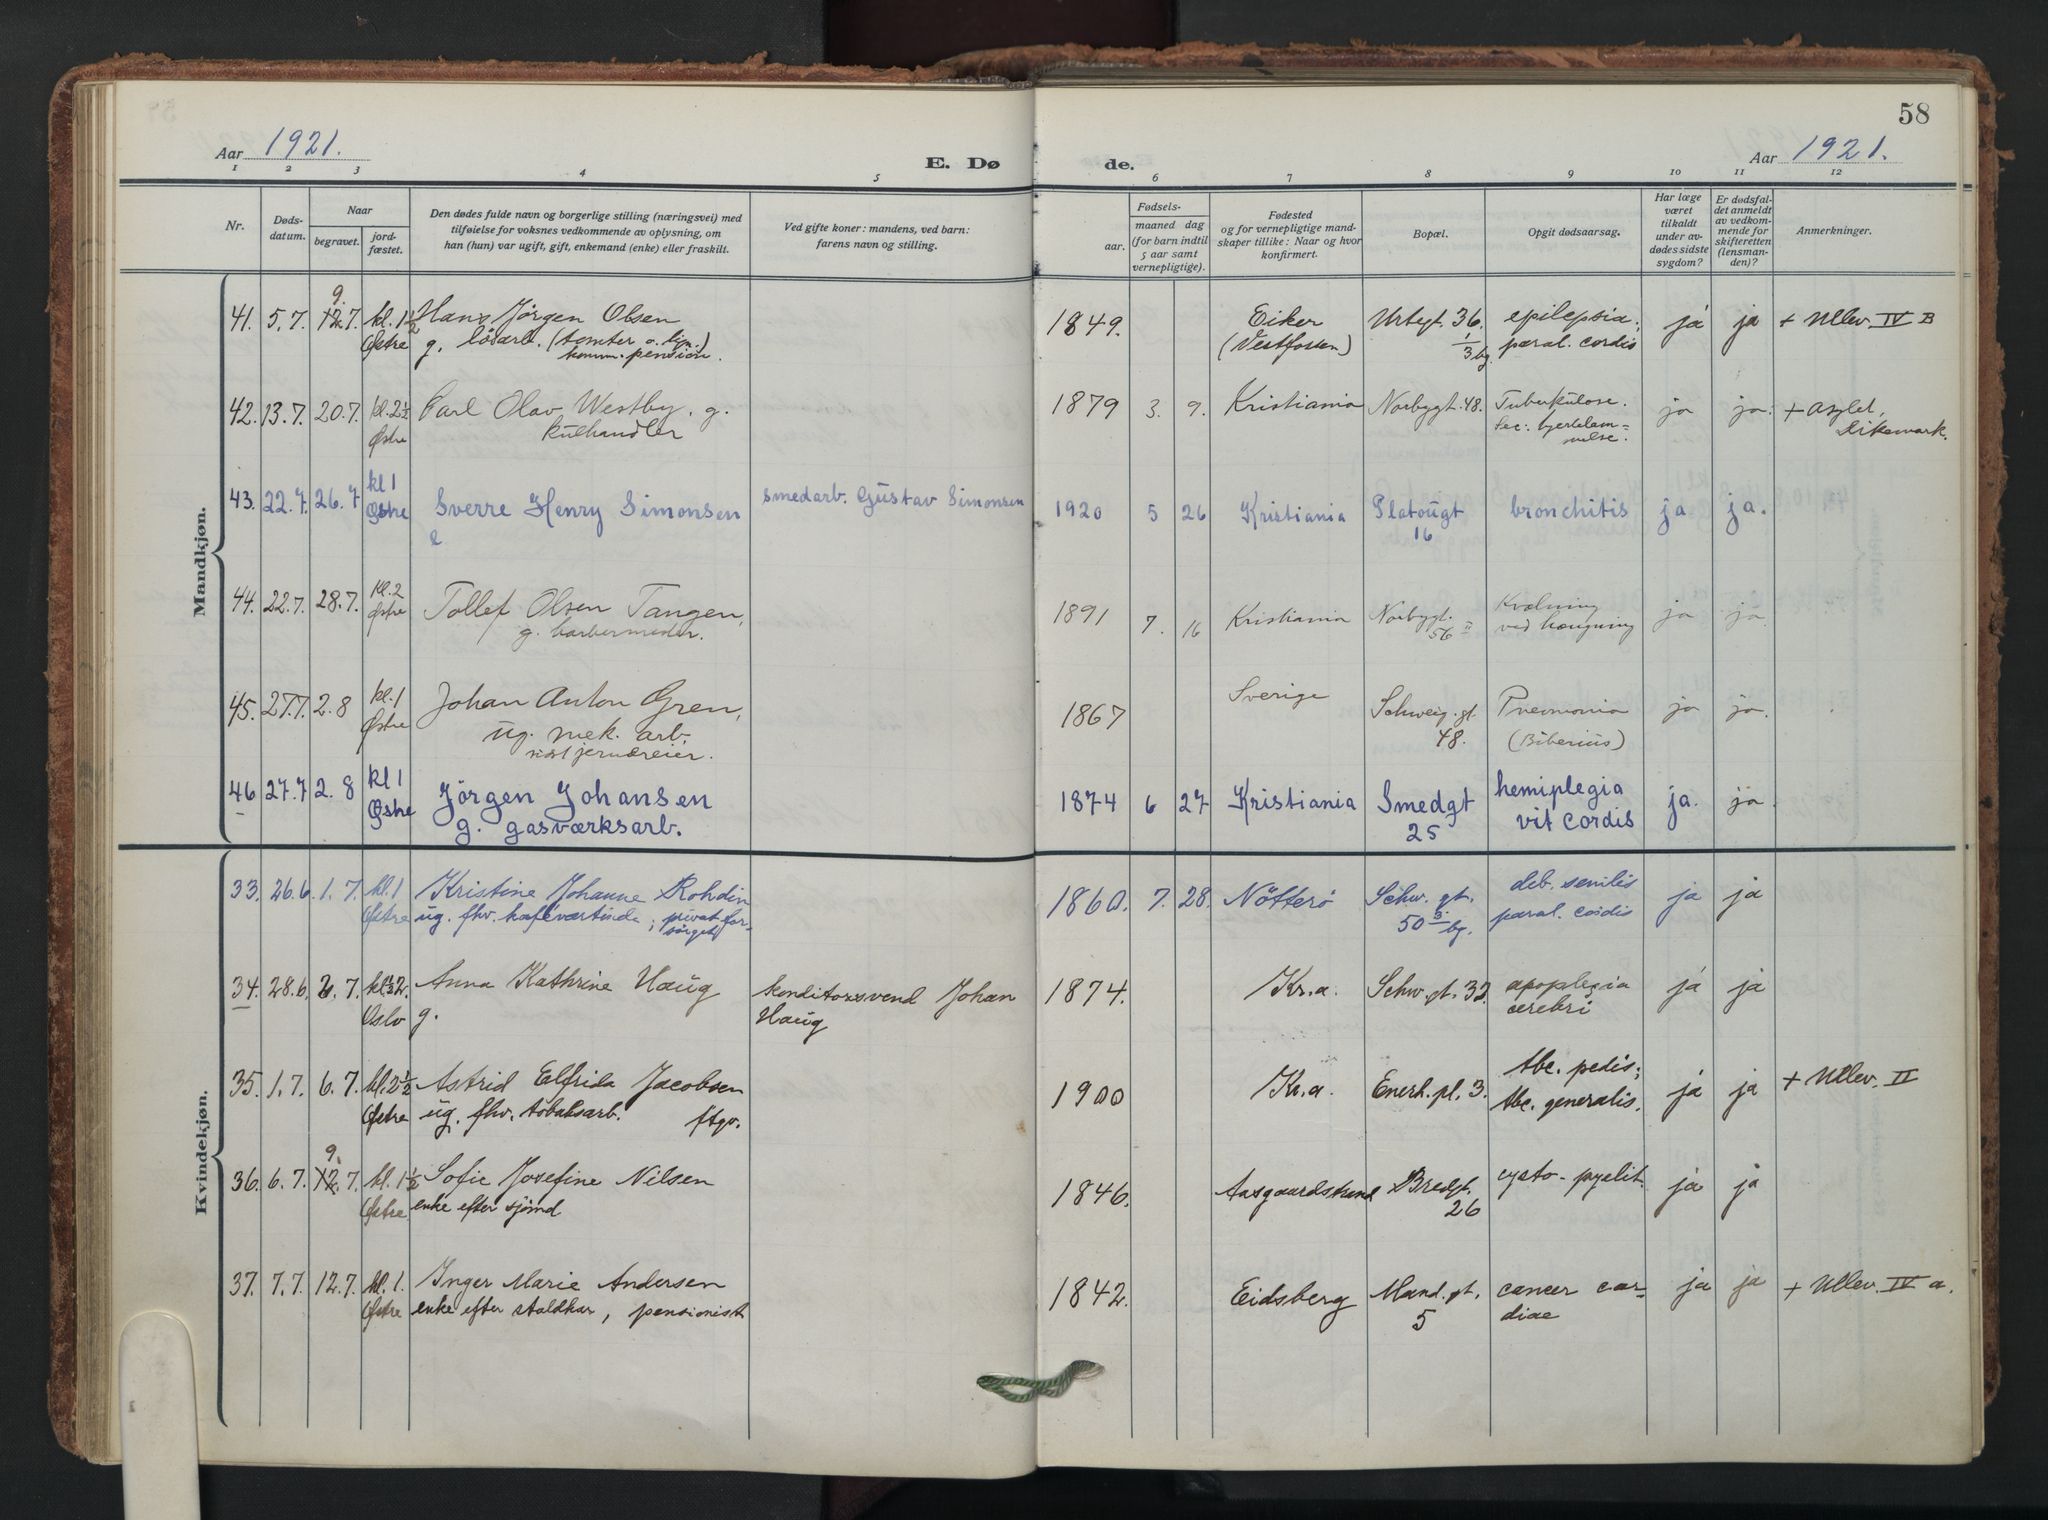 58
Aar 1921.
E. Dø de.
Aar 1921.
1 2 3 4 5 6 7 8 9 10 11 12
Nr.
Døds-
datum.
Naar
begravet.
jord-
fæstet.
Den dødes fulde navn og borgerlige stilling (næringsvei) med
tilføielse for voksnes vedkommende av oplysning, om
han (hun) var ugift, gift, enkemand (enke) eller fraskilt.
Ved gifte koner: mandens, ved barn:
farens navn og stilling.
Fødsels-
aar.
maaned dag
(for barn indtil
5 aar samt
vernepligtige).
Fødested
og for vernepligtige mand-
skaper tillike: Naar og hvor
konfirmert.
Bopæl.
Opgit dødsaarsag.
Har læge
været
tilkaldt
under av-
dødes sidste
sygdom?
Er dødsfal-
det anmeldt
av vedkom-
mende for
skifteretten
(lensman-
den)?
Anmerkninger.
Mandkjøn.
9.
41. 5.7. 12.7. kl. 1½ Hans Jørgen Olsen 1849. Eiker Urtegt. 36. epilepsia; ja ja + Ullev. IV B
Østre g. løsarb. (tomter o. lign.) (Vestfossen) 1/3 bg. paral. cordis
komm. pension.
42. 13.7. 20.7. kl. 2½ Carl Olav Westby. g. 1879 3. 9. Kristiania Norbygt. 48. Tuberkulose. ja ja. + Asylet,
Østre kulhandler Sec: hjertelam-
melse. Dikemark.
43. 22.7. 26.7 kl 1 Sverre Henry Simonsen smedarb. Gustav Simonsen 1920 5 26 Kristiania Platougt bronchitis ja ja.
Østre e 16
44. 22.7. 28.7. kl. 2 Tollef Olsen Tangen, 1891 7. 16 Kristiania Norbygt. Kvælning ja ja.
Østre g. barbermester. 56 II ved hængning
45. 27.7. 2.8 kl. 1 Johan Anton Gren, 1867 Sverige Schweig. gt. Pneumonia ja ja.
Østre ug. mek. arb. 48. (Biberius)
46 27.7 2.8 kl 1 Jörgen Johansen 1874 6 27 Kristiania Smedgt hemiplegia ja. ja.
Østre g. gasværksarb. 25 vit cordis
Kvindekjøn.
33. 26.6. 1.7. kl. 1 Kristine Johanne Rohdin 1860. 7. 28. Nötterö Schw. gt. deb. senilis ja ja
Østre ug. fhv. kaféværtinde; privat for- 50 3/ bg. paral. cordis
sørget
34. 28.6. 2.7. kl. ½2. Anna Kathrine Haug konditorsvend Johan 1874. Kr.a. Schw. gt. 32. apoplegia ja ja
Oslo g. Haug cerebri
35. 1.7. 6.7. kl. 2½ Astrid Elfrida Jacobsen 1900 Kr.a. Enerh. pl. 3. tbc. pedis; ja ja + Ullev. II
Østre ug. fhv. tobaksarb. ftgv. tbc. generalis.
9.
36. 6.7. 12.7. kl. 1½ Sofie Josefine Nilsen 1846. Aasgaardstrand Bredgt. cysto-pyelit. ja ja
Østre enke efter sjømd 26
37. 7.7. 12.7. kl. 1. Inger Marie Andersen 1842. Eidsberg Mand. gt. cancer car- ja ja + Ullev. IV a.
Østre enke efter staldkar, pensionist 5 diae